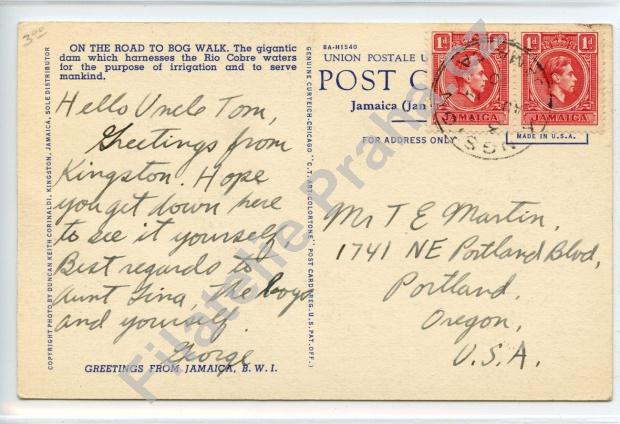 300
ON THE ROAD TO BOG WALK. The gigantic
dam which harnesses the Rio Cobre waters
for the purpose of irrigation and to serve
mankind.
Hello Uncle Tom,
Greetings from
Kingston. Hope
you get down here
to see it yourself.
Best regards to
Aunt Tina, the boys
and yourself.
George
GREETINGS FROM JAMAICA, B.W.I.
COPYRIGHT PHOTO BY DUNCAN KEITH CORINALDI, KINGSTON, JAMAICA, SOLE DISTRIBUTOR
GENUINE CURTEICH-CHICAGO "C.T. ART-COLORTONE" POST CARD (REG. U.S. PAT. OFF.)
8A-H1540
UNION POSTALE U
POST C
Jamaica (Jan
FOR ADDRESS ONLY
1d
1d
JAMAICA
JAMAICA
MADE IN U.S.A.
Mr T E Martin,
1741 NE Portland Blvd,
Portland,
Oregon,
U.S.A.